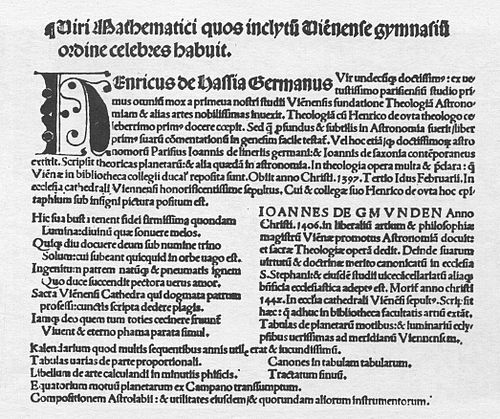 ¶Viri Mathematici quos inclytū Viēnense gymnasiū
ordine celebres habuit.
HEnricus de Hassia Germanus Vir undecūqȝ doctissimꝰ: ex ve
tustissimo parisiensiū studio pri
mus omniū mox a primeua nostri studii Viēnensis fundatione Theologiā Astrono
miam & alias artes nobilissimas inuexit. Theologiā cū Henrico de oyta theologo ce
leberrimo primꝰ docere cœpit. Sed ꝙ̄ ꝓfundus & subtilis in Astronomia fuerit/liber
primꝰ suarū cōmentationū in genesim facile testaꞇ. Vel hoc etiā ꝙ doctissimoꝝ astro
nomorū Parisius Ioannis de lineriis germani: & Ioannis de saxonia contēporaneus
extitit. Scripsit theoricas planetarū: & alia quædā in astronomia. In theologia opera multa & p̄clara: q̄
Viēnæ in bibliotheca collegii ducal' reposita sunt. Obiit anno Christi. 1397. Tertio Idus Februarii. In
ecclesia cathedrali Viennensi honorificentissime sepultus, Cui & collegæ suo Henrico de oyta hoc epi
taphium sub insigni pictura positum est.
Hic sua busta tenent fidei firmissima quondam
Lumina: diuinū quæ sonuere melos.
Quiqȝ diu docuere deum sub numine trino
Solum: cui subeant quicquid in orbe uago est.
Ingenitum patrem natūqȝ & pneumatis ignem
Quo duce succendit pectora uerus amor.
Sacra Viēnēsi Cathedra qui dogmata patrum
professi: cunctis scripta dedere plagis.
Iamqȝ deo quem tum toties cecinere fruunꞇ
Viuent & eterno phama parata simul.
IOANNES DE GMVNDEN Anno
Christi. 1406. in liberaliū artium & philosophiæ
magistrū Viēnæ promotus Astronomiā docuit:
et sacræ Theologiæ operā dedit. Deinde suarum
uirtutū & doctrinæ merito canonicatū in ecclesia
S. Stephani: & eiusdē studii uicecācellariatū aliaqȝ
bn̄ficia ecclesiastica adeptꝰ est. Moriꞇ anno christi
1442. In ecclīsa cathedrali Viēnēsi sepultꝰ. Scripsit
hæc: q̄ adhuc in bibliotheca facultatis artiū extāt.
Tabulas de planetarū motibus: & luminariū ecly
psibus uerissimas ad meridianū Viennensem.
Kalendarium quod multis sequentibus annis utile erat & iucundissimū.
Tabulas uarias de parte proportionali.
Canones in tabulam tabularum.
Libellum de arte calculandi in minutiis phisicis.
Tractatum sinuū.
Equatorium motuū planetarum ex Campano transsumptum.
Compositionem Astrolabii: & utilitates eiusdem: & quorundam aliorum instrumentorum.